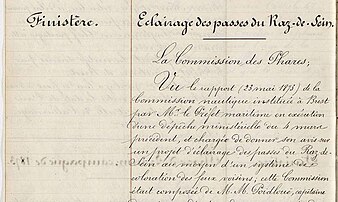 Finistère.
Eclairage des passes du Raz-de-Sein.
La Commission des Phares;
Vu le rapport (23 mai 1873) de la
Commission nautique instituée à Brest
par Mr. le Préfet maritime en exécution
d'une dépêche ministérielle du 4 mars
précédent, et chargée de donner son avis sur
un projet d'éclairage des passes du Raz-de-
Sein au moyen d'un système de
coloration des feux voisins; cette Commission
était composée de M.M. capitaine